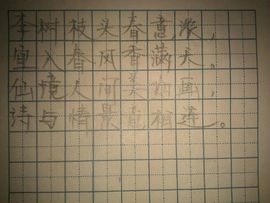 李树枝头春意浓，
宜入春风香满天。
仙境人间美如画，
诗与情景意相连。